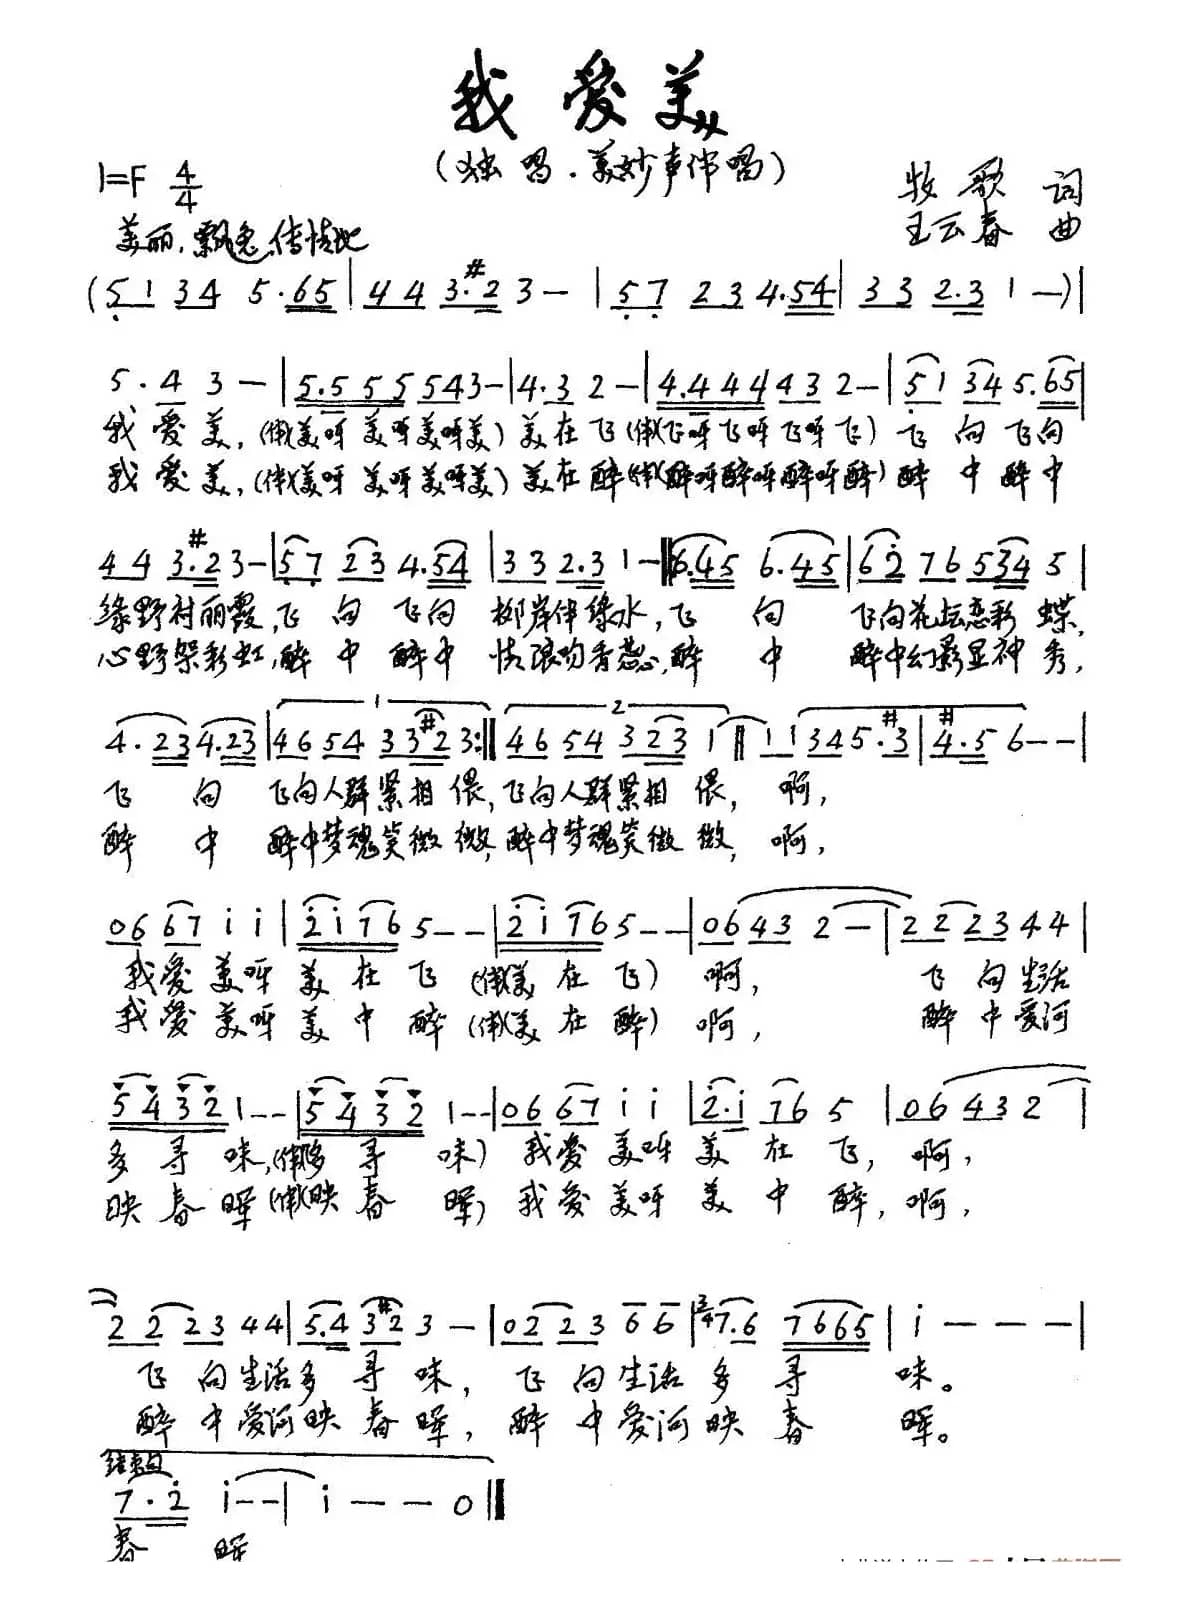 我爱美
(独唱.美妙声伴唱)
1=F 4/4
牧歌 词
美丽,飘逸,传情地
王云春 曲
(5 1 3 4 5·6 5 | 4 4 3·#2 3 — | 5 7 2 3 4·5 4 | 3 3 2·3 1 —)|
5·4 3 — | 5·5 5 5 5 4 3 — | 4·3 2 — | 4·4 4 4 4 3 2 — | 5 1 3 4 5·6 5 |
我爱美,(伴)(美呀美呀美呀美)美在飞(伴)(飞呀飞呀飞呀飞)飞向飞向
我爱美,(伴)(美呀美呀美呀美)美在醉(伴)(醉呀醉呀醉呀醉)醉中醉中
4 4 3·#2 3 — | 5 7 2 3 4·5 4 | 3 3 2·3 1 — 6·4 5 6·4 5 | 6 2 7 6 5 3 4 5 |
绿野衬丽霞,飞向飞向柳岸伴绿水,飞向飞向花坛恋彩蝶,
心野架彩虹,醉中醉中情浪吻香蕊,醉中醉中幻影显神秀,
4·2 3 4·2 3 | 4 6 5 4 3 3 #2 3 :‖ 4 6 5 4 3 2 3 1 ‖ 1 1 3 4 5·#3 | #4·5 6 — — |
飞向飞向人群紧相偎,飞向人群紧相偎,啊,
醉中醉中梦魂笑微微,醉中梦魂笑微微,啊,
0 6 6 7 i i | 2 i 7 6 5 — — | 2 i 7 6 5 — — | 0 6 4 3 2 — | 2 2 2 3 4 4 |
我爱美呀美在飞(伴)(美在飞)啊,飞向生活
我爱美呀美中醉(伴)(美在醉)啊,醉中爱河
5 4 3 2 1 — — | 5 4 3 2 1 — — | 0 6 6 7 i i | 2·i 7 6 5 | 0 6 4 3 2 |
多寻味,(伴)(多寻味)我爱美呀美在飞,啊,
映春晖(伴)(映春晖)我爱美呀美中醉,啊,
2 2 2 3 4 4 | 5·4 3 #2 3 — | 0 2 2 3 6 6 | 3/4 7·6 7 6 6 5 | i — — — |
飞向生活多寻味,飞向生活多寻味。
醉中爱河映春晖,醉中爱河映春晖。
结束句
7·2 i — — | i — — 0 ‖
春晖